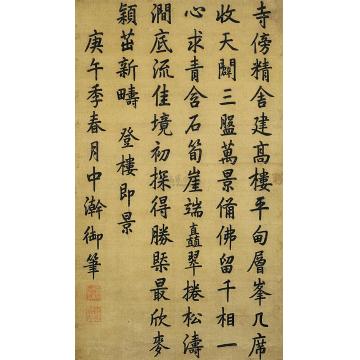 寺傍精舍建高樓平甸層峯几席
收天闢三盤萬景備佛留千相一
心求青含石筍崖端矗翠捲松濤
澗底流佳境初探得勝槩最欣麥
穎茁新疇 登樓即景
庚午季春月中澣御筆